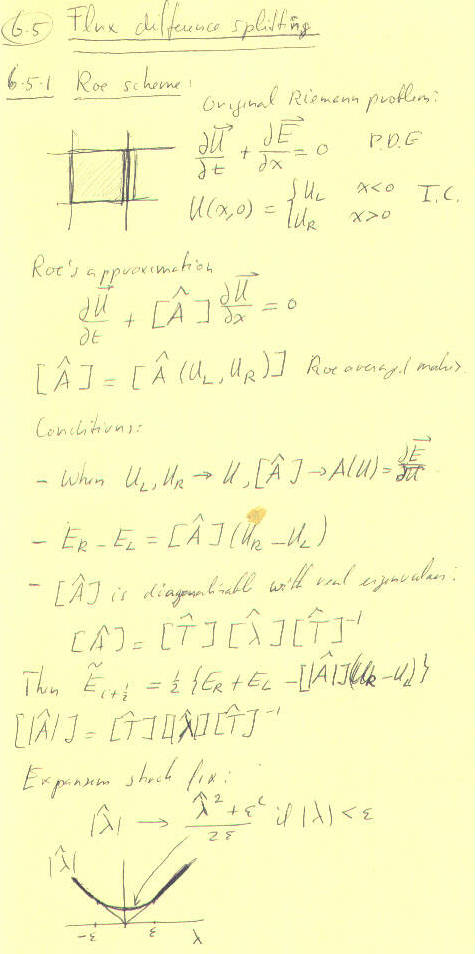 6.5 Flux difference splitting
6.5.1 Roe scheme:
Original Riemann problem:
∂U⃗/∂t + ∂E⃗/∂x = 0   P.D.E
U(x,0) = { U_L x<0   I.C.
U_R x>0
Roe's approximation
∂U⃗/∂t + [Â] ∂U⃗/∂x = 0
[Â] = [Â(U_L, U_R)] Roe averaged matrix.
Conditions:
- When U_L, U_R → U, [Â] → A(U) = ∂E⃗/∂U
- E_R - E_L = [Â](U_R - U_L)
- [Â] is diagonalisable with real eigenvalues:
[Â] = [T̂][λ̂][T̂]⁻¹
Then Ẽ_{i+½} = ½{E_R + E_L - [|Â|](U_R - U_L)}
[|Â|] = [T̂][|λ̂|][T̂]⁻¹
Expansion shock fix:
|λ̂| → (λ̂² + ε²)/2ε if |λ| < ε
|λ̂|
-ε ε λ